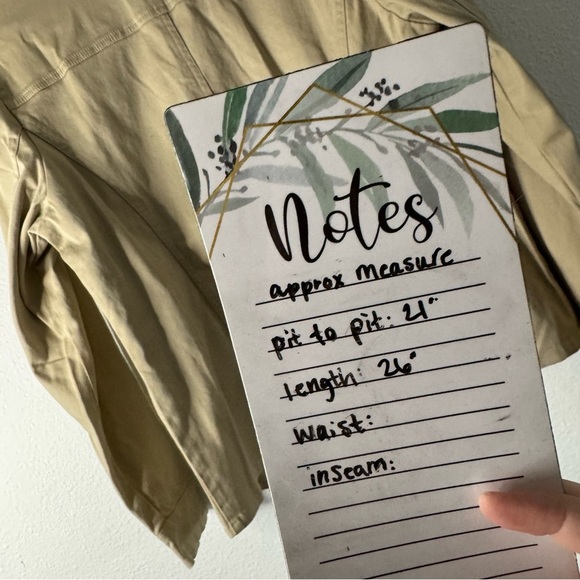 Notes
approx measure
pit to pit: 21"
length: 26"
waist:
inseam: